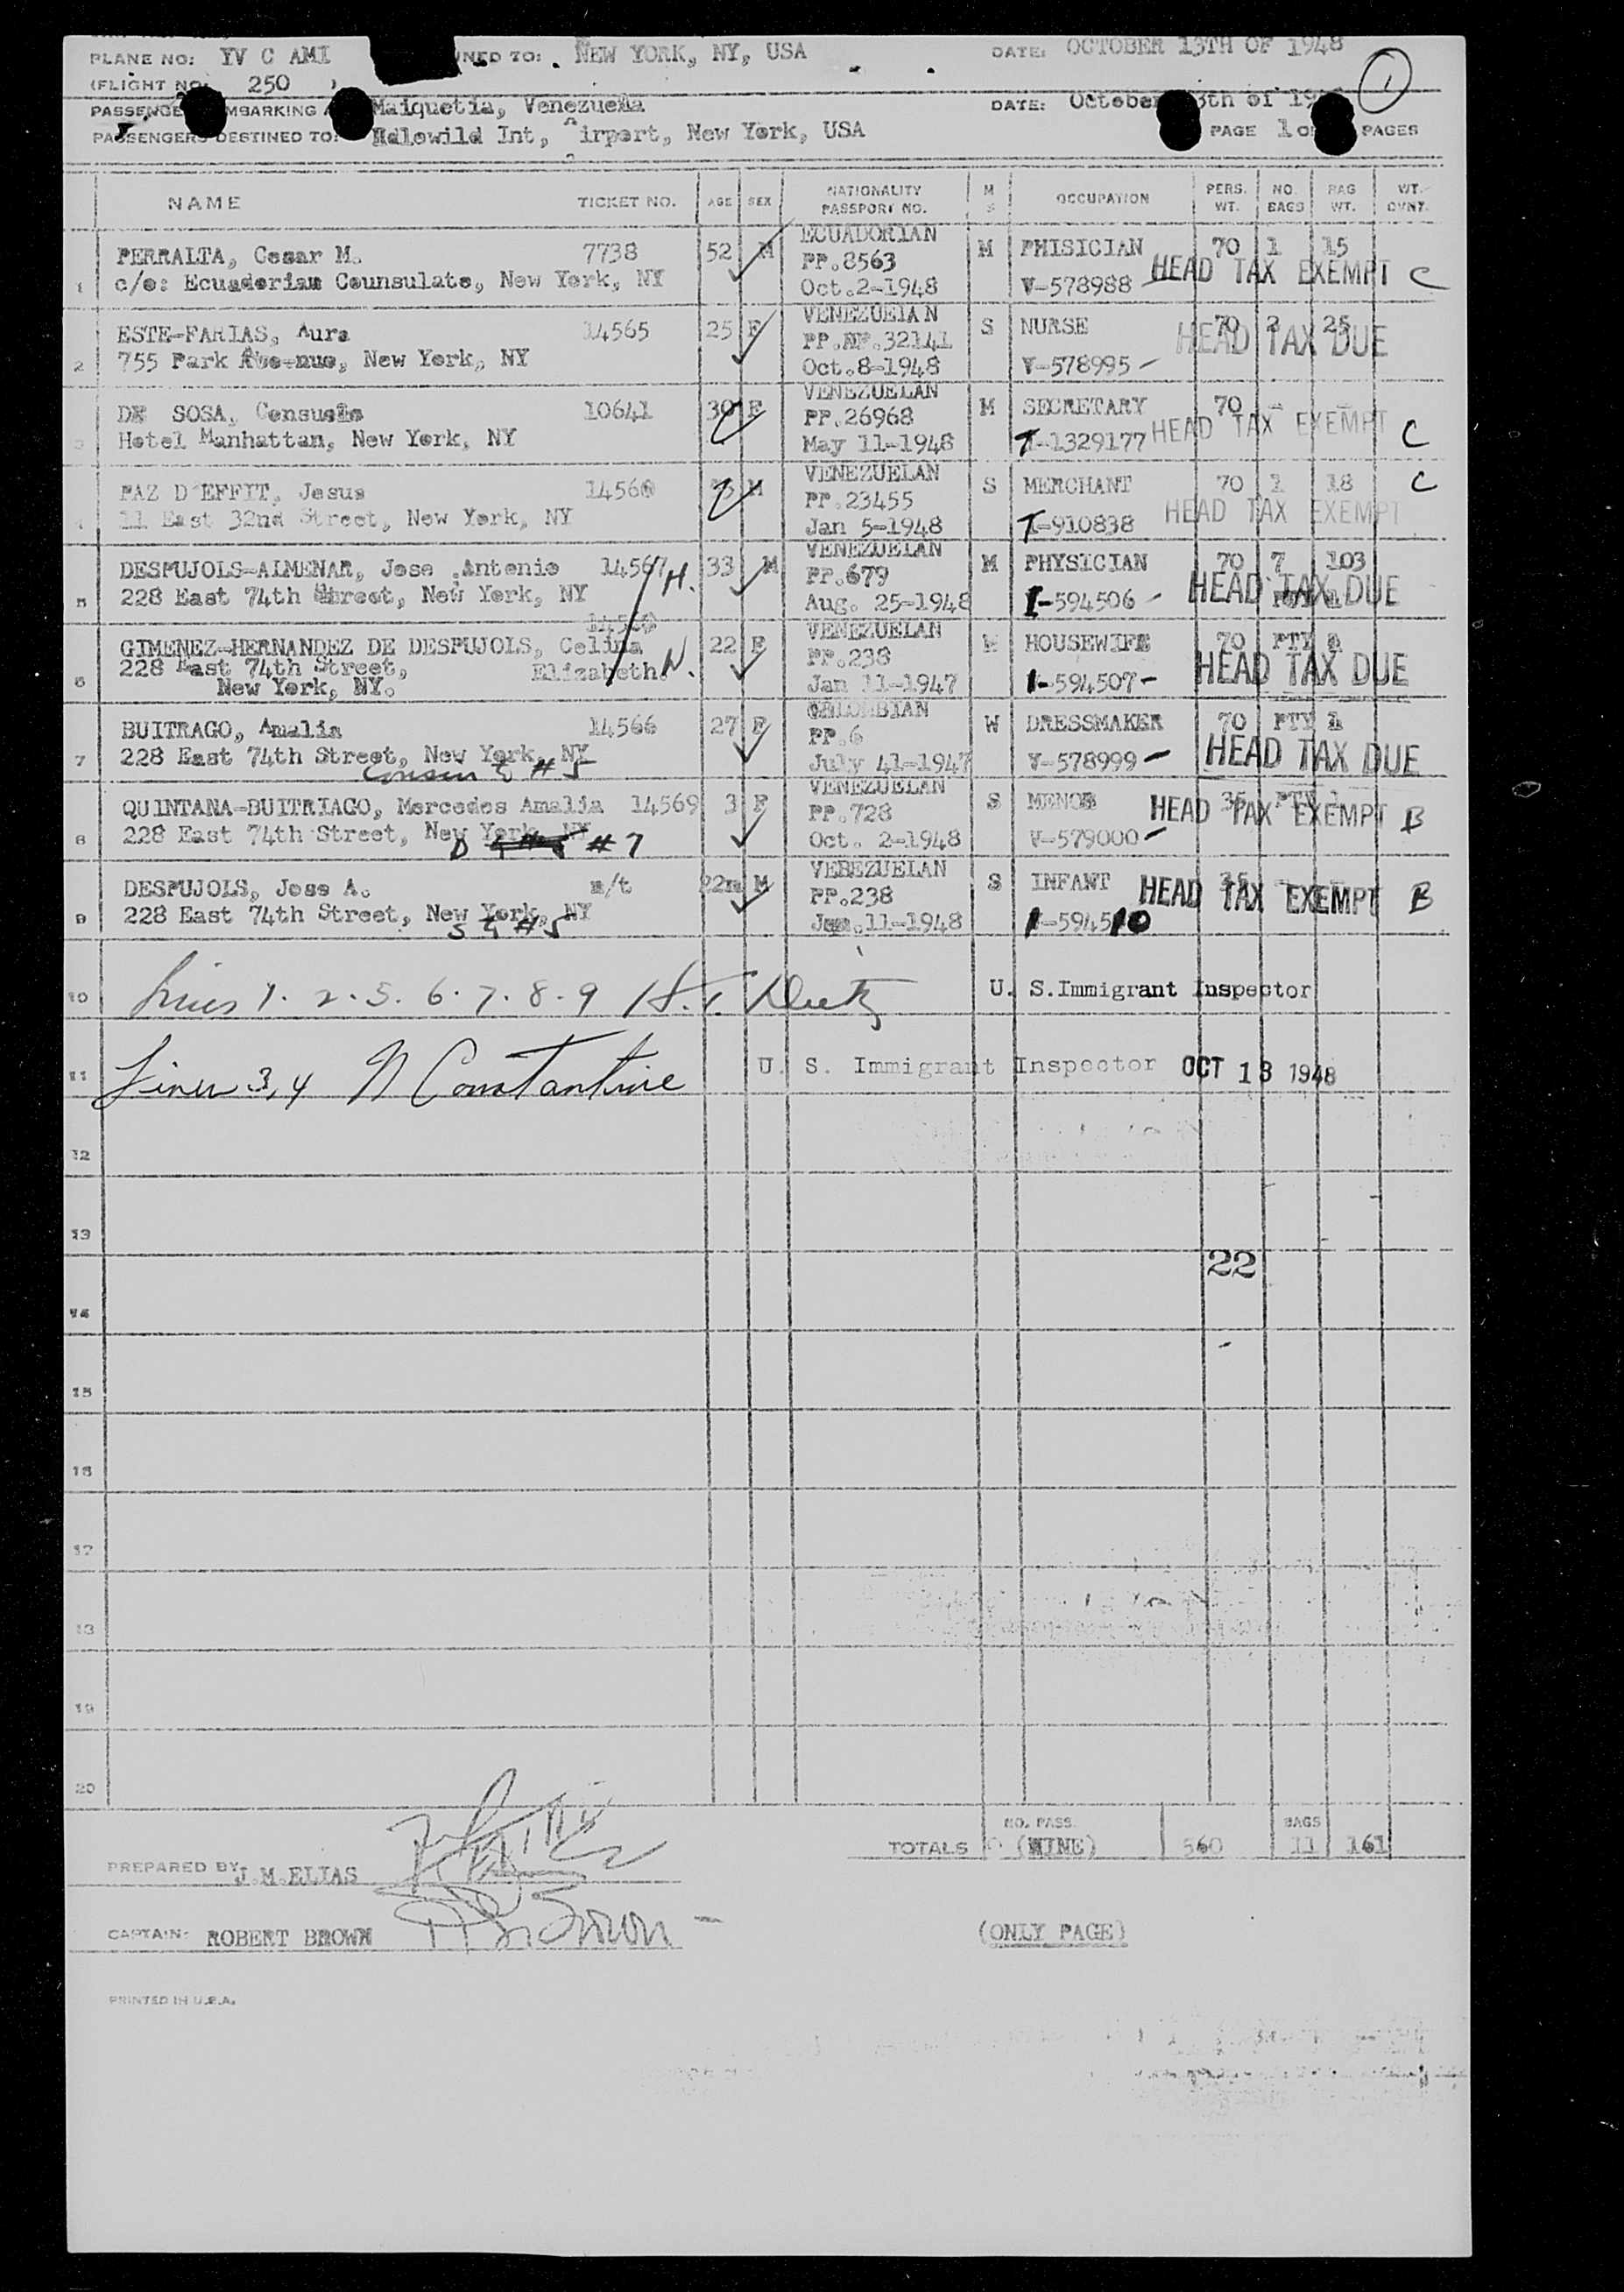 PLANE NO: YV C AMI NED TO: NEW YORK, NY, USA DATE: OCTOBER 13TH OF 1948
(FLIGHT NO: 250 ) 1
PASSENGE MBARKING Maiquetia, Venezuela DATE: October 3th of 19
PASSENGERS DESTINED TO: Idlewild Int, Airport, New York, USA PAGE 1 OF PAGES
NAME TICKET NO. AGE SEX NATIONALITY PASSPORT NO. M S OCCUPATION PERS. WT. NO. BAGS BAG WT. WT. OVNT.
ECUADORIAN
PERRALTA, Cesar M. 7738 52 M PP.8563 M PHISICIAN 70 1 15
1 c/o: Ecuadorian Counsulate, New York, NY Oct.2-1948 V-578988 HEAD TAX EXEMPT C
VENEZUELAN
ESTE-FARIAS, Aura 14565 25 F PP.NP.32141 S NURSE 70 2 25
2 755 Park Ave-nue, New York, NY Oct.8-1948 V-578995 - HEAD TAX DUE
VENEZUELAN
DE SOSA, Consuelo 10641 30 F PP.26968 M SECRETARY 70 - -
3 Hotel Manhattan, New York, NY May 11-1948 T-1329177 HEAD TAX EXEMPT C
VENEZUELAN
PAZ D'EFFIT, Jesus M PP.23455 S MERCHANT 70 1 18 C
4 11 East 32nd Street, New York, NY Jan 5-1948 T-910838 HEAD TAX EXEMPT
VENEZUELAN
DESPUJOLS-ALMENAR, Jose Antonio 14567 H. 33 M PP.679 M PHYSICIAN 70 7 103
5 228 East 74th Street, New York, NY Aug. 25-1948 I-594506 - HEAD TAX DUE
VENEZUELAN
GIMENEZ-HERNANDEZ DE DESPUJOLS, Celina 22 F PP.238 M HOUSEWIFE 70 PTY
228 East 74th Street, Elizabeth. W. HEAD TAX DUE
6 New York, NY. Jan 11-1947 I-594507 -
BUITRAGO, Amalia 14566 27 F PP.6 W DRESSMAKER 70 PTY 1
7 228 East 74th Street, New York, NY July 41-1947 V-578999 - HEAD TAX DUE
Cousin to #5
VENEZUELAN
QUINTANA-BUITRIAGO, Mercedes Amalia 14569 3 F PP.728 S MENOR 35 PTY 1
8 228 East 74th Street, New York, NY Oct. 2-1948 V-579000 - HEAD TAX EXEMPT B
D #7
VEBEZUELAN
DESPUJOLS, Jose A. n/t 22m M PP.238 S INFANT 35 HEAD TAX EXEMPT B
9 228 East 74th Street, New York, NY Jan.11-1948 I-594510
S to #5
10 Lines 1. 2. 5. 6. 7. 8. 9 U. S.Immigrant Inspector
11 Lines 3, 4 N Constantine U. S. Immigrant Inspector OCT 13 1948
12
13
22
14
15
16
17
18
19
20
TOTALS NO. PASS. (NINE) 560 BAGS 11 161
PREPARED BY J.M.ELIAS
CAPTAIN: ROBERT BROWN R Brown (ONLY PAGE)
PRINTED IN U.S.A.